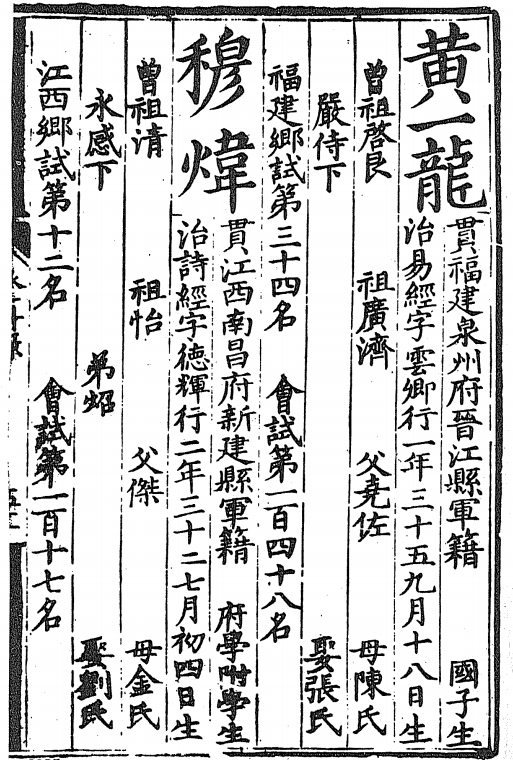 黄一龍
貫福建泉州府晉江縣軍籍　國子生
治易經字雲卿行一年三十五九月十八日生
曾祖啓艮　祖廣濟　父堯佐　母陳氏
嚴侍下　娶張氏
福建鄉試第三十四名　會試第一百四十八名
穆煒
貫江西南昌府新建縣軍籍　府學附學生
治詩經字德輝行二年三十二七月初四日生
曾祖清　祖怡　父傑　母金氏
永感下　弟炤　娶劉氏
江西鄉試第十二名　會試第一百十七名